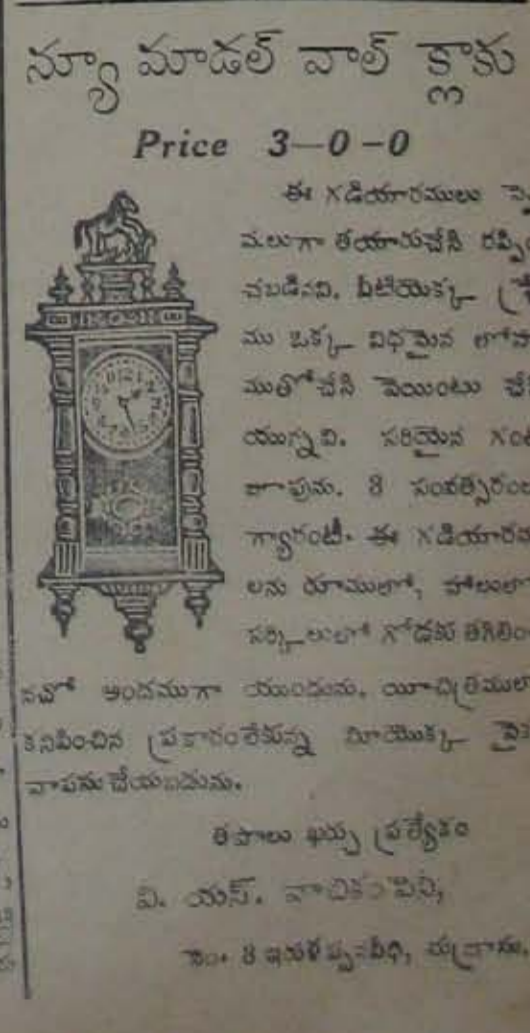 న్యూ మాడల్ వాల్ క్లాకు
Price 3—0—0
ఈ గడియారములు
మలుగా తయారుచేసి రప్పిం
చబడినవి. వీటియొక్క
ము ఒక్క విధమైన లోహ
ముతోచేసి పెయింటు చే
యున్నవి. సరియైన గంట
జూపును. 8 సంవత్సరంల
గ్యారంటీ. ఈ గడియారమ
లను రూములో, హాలులో
సర్కిలులో గోడకు తగిలిం
నచో అందముగా యుండును. యీచిత్రములో
కనిపించిన ప్రకారంలేకున్న మీయొక్క పైక
వాపసుచేయబడును.
తపాలు ఖర్చు ప్రత్యేకం
వి. యస్. వాచికంపెని,
నెం. 8 వీధి, మద్రాసు.